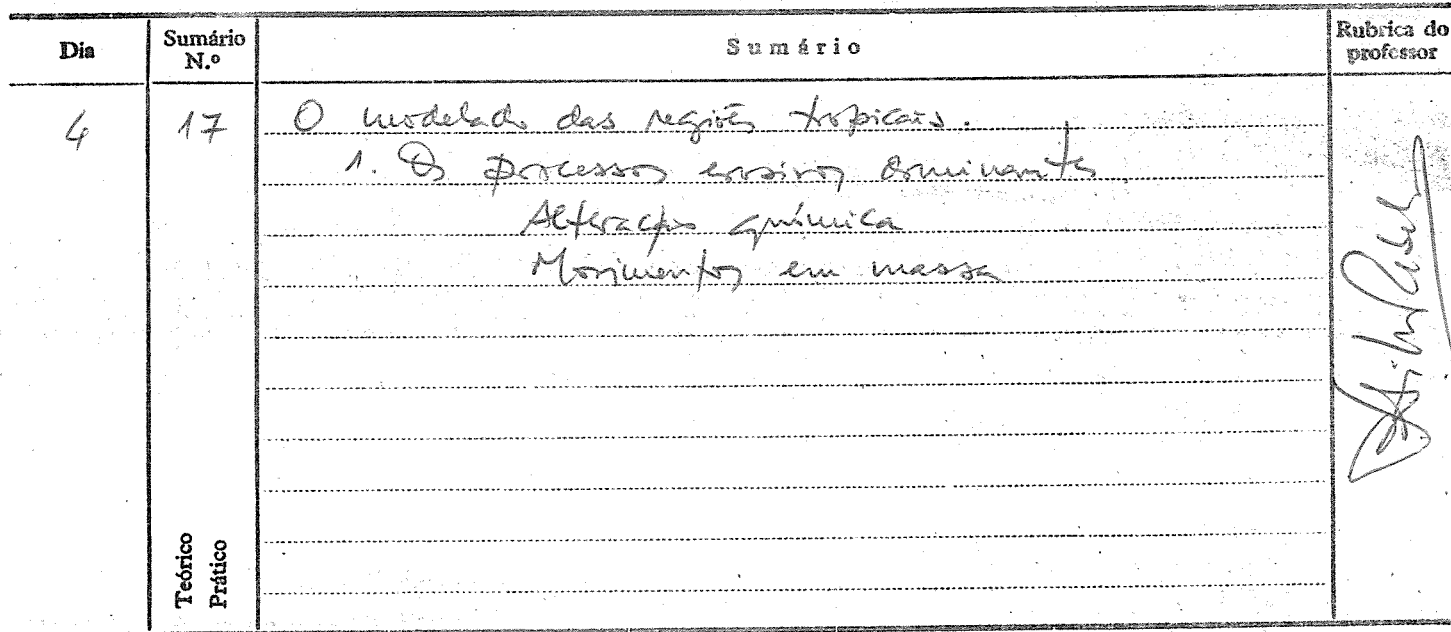 Dia
Sumário N.º
Sumário
Rubrica do professor
4
17
O modelado das regiões tropicais.
1. Os processos erosivos dominantes
Alteração química
Movimentos em massa
Teórico
Prático